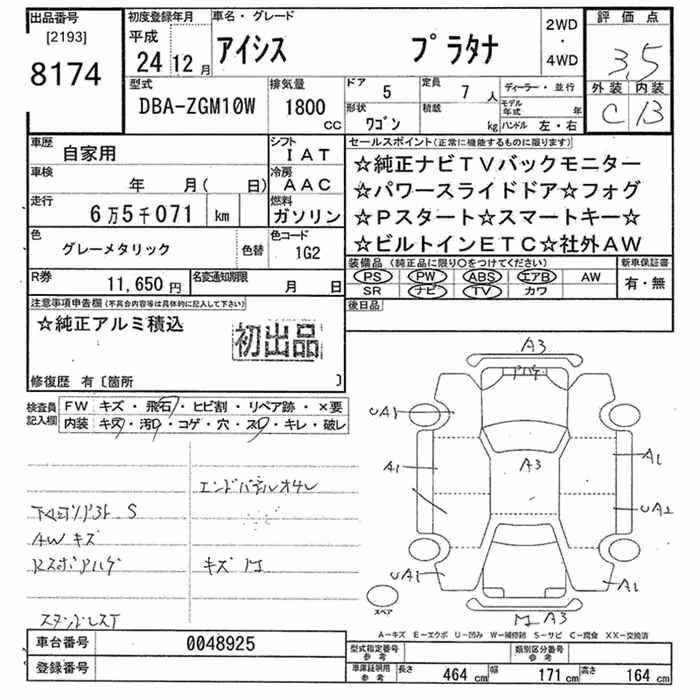 出品番号
[2193]
8174
初度登録年月
平成
24 12月
車名・グレード
アイシス プラタナ
2WD
・
4WD
評価点
3.5
外装 内装
C B
型式
DBA-ZGM10W
排気量
1800
CC
ドア
5
定員
7 人
ディーラー・並行
形状
ワゴン
積載
kg
モデル年式 年
ハンドル 左・右
車歴
自家用
シフト
IAT
車検
年 月( 日)
冷房
AAC
走行
6万5千071 km
燃料
ガソリン
色
グレーメタリック
色替
色コード
1G2
R券
11,650円
名変通知期限
月 日
セールスポイント(正常に機能するものに限ります)
☆純正ナビTVバックモニター
☆パワースライドドア☆フォグ
☆Pスタート☆スマートキー☆
☆ビルトインETC☆社外AW
装備品(純正品に限り○をつけてください)
新車保証書
PS PW ABS エアB AW
SR ナビ TV カワ
有・無
後日品
注意事項申告欄(不具合内容等は具体的に記入して下さい)
☆純正アルミ積込
初出品
修復歴 有〔箇所 〕
検査員記入欄
FW キズ・飛石・ヒビ割・リペア跡・×要
内装 キズ・汚れ・コゲ・穴・スレ・キレ・破レ
エンドパネルオサレ
S
AWキズ
キズ
A3
UA1
A1
A3
A1
UA2
UA1
A1
A3
スペア
A-キズ E-エクボ U-凹み W-補修跡 S-サビ C-腐食 XX-交換済
車台番号
0048925
登録番号
型式指定番号
参考
類別区分番号
参考
車庫証明用
参考
長さ 464 cm 幅 171 cm 高さ 164 cm